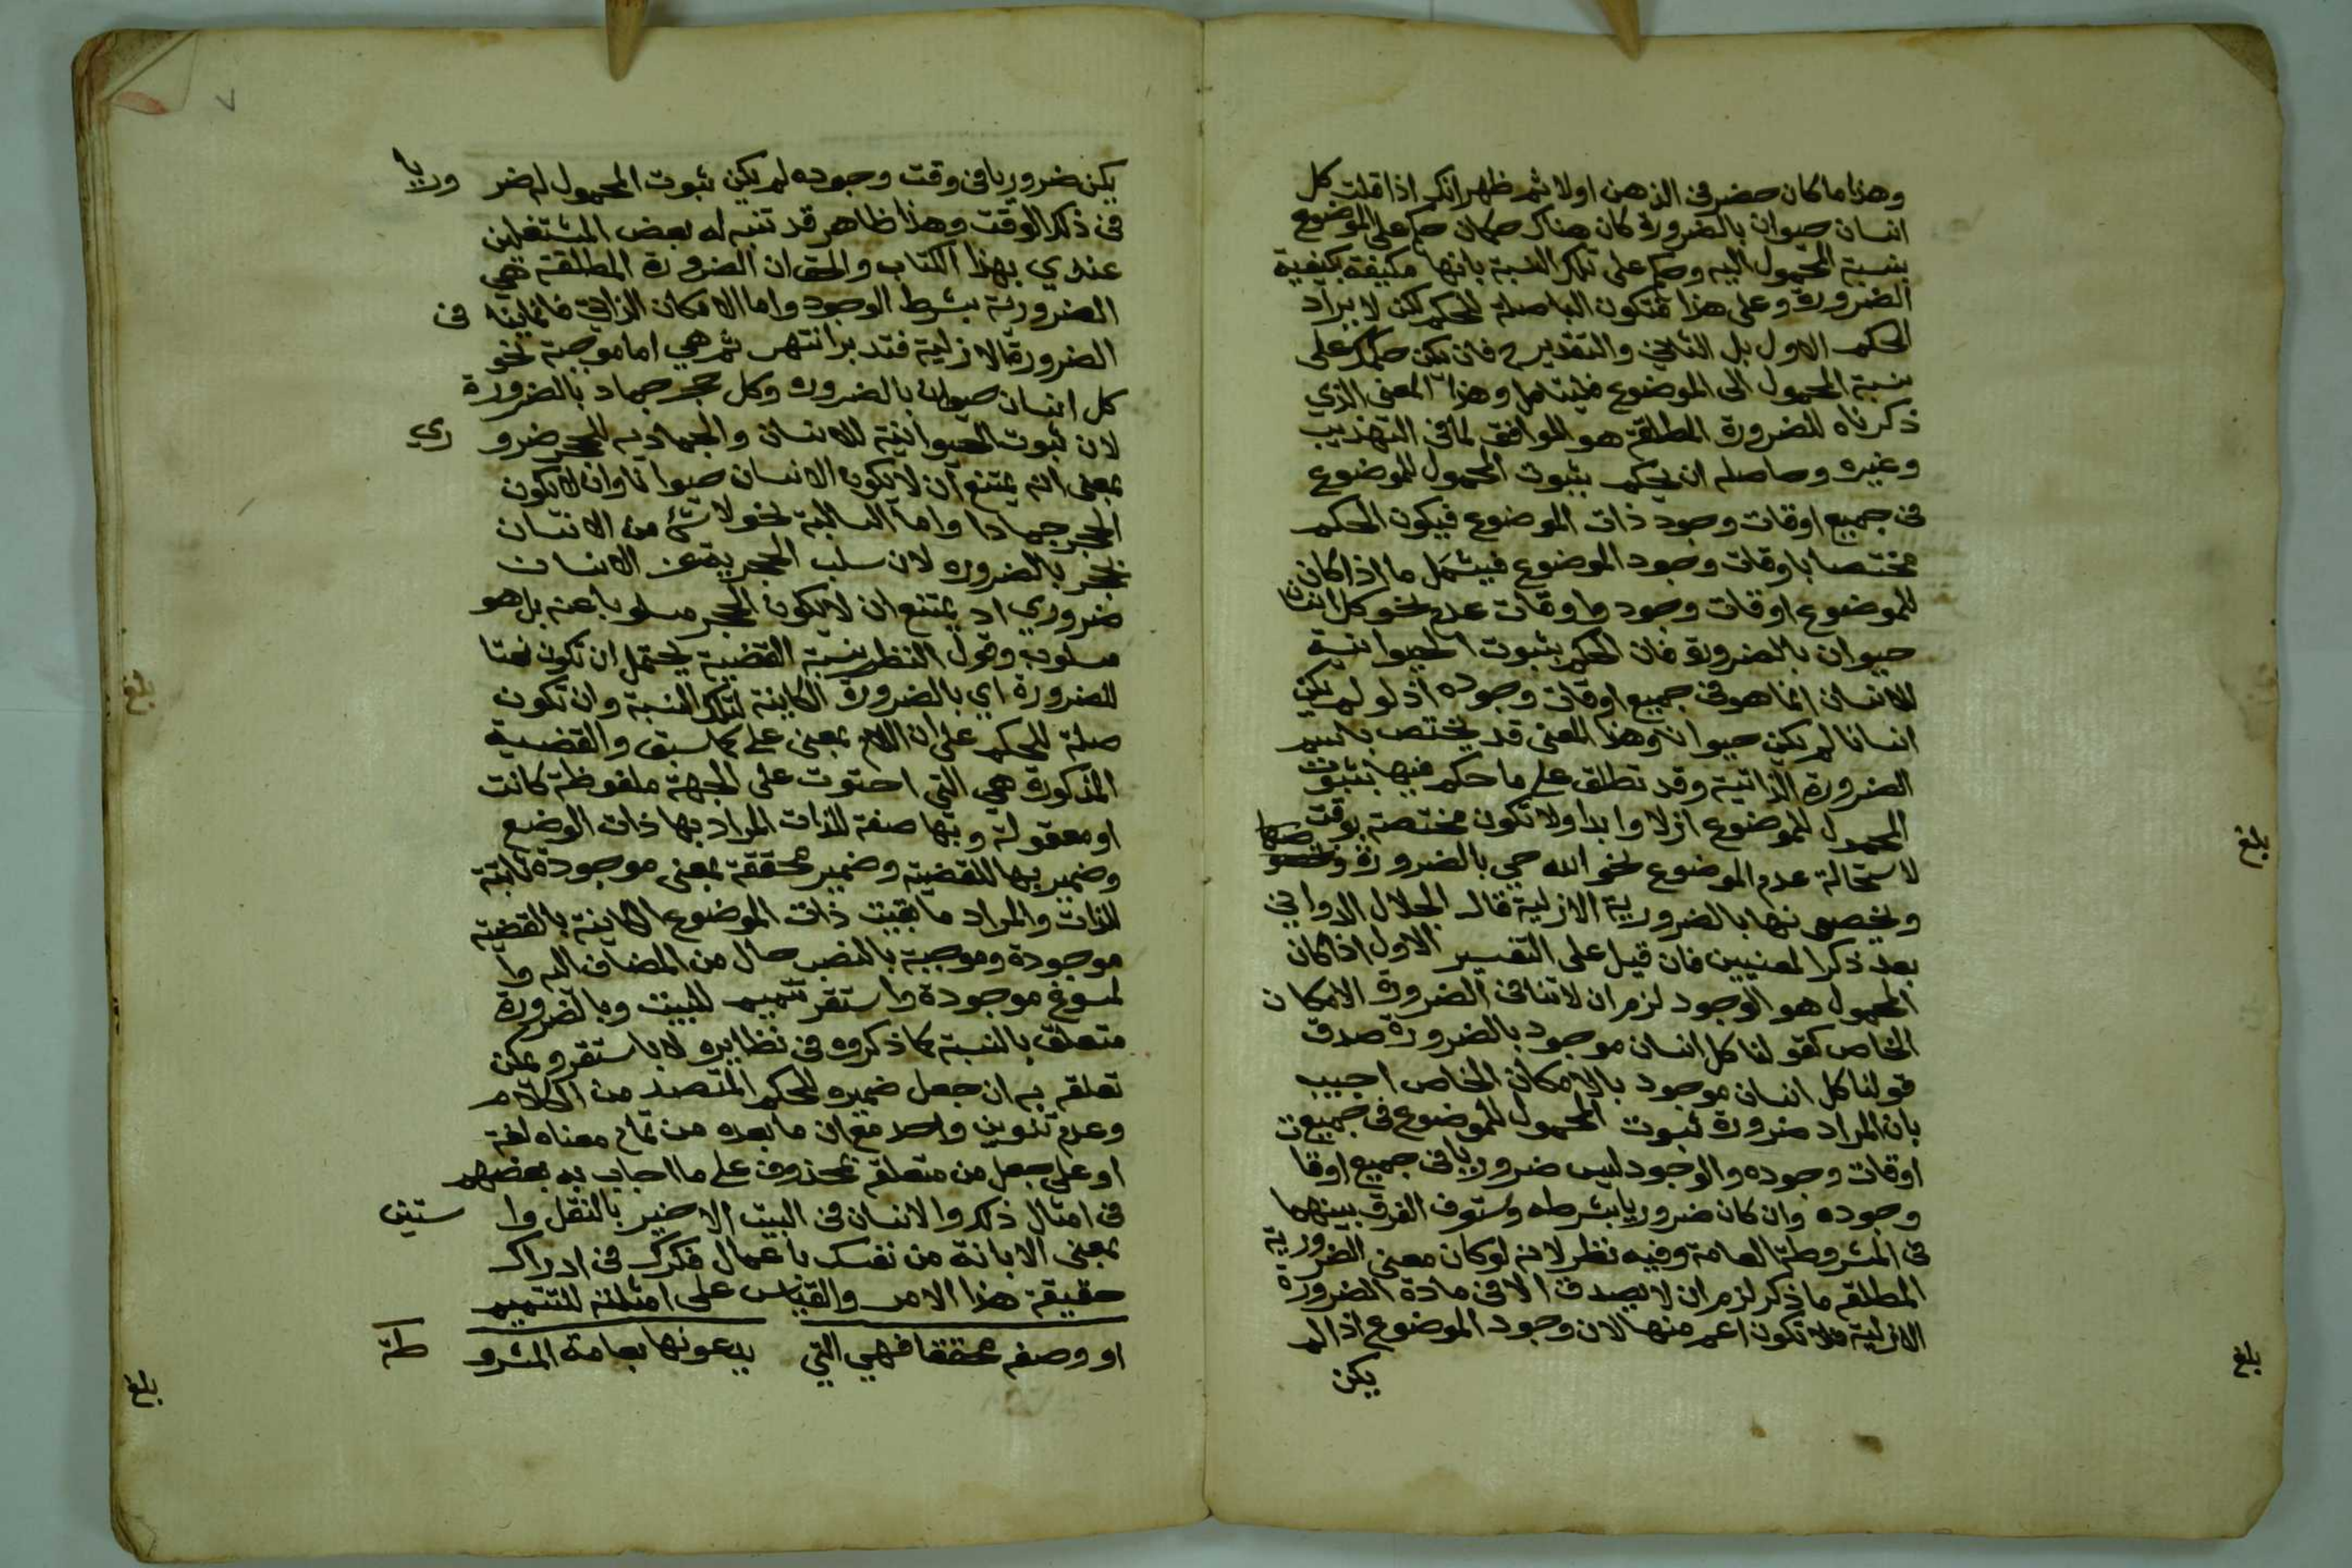 وهذا ما كان حضر في الذهن اولا ثم ظهر انك اذا قلت كل
انسان حيوان بالضرورة كان هناك حكمان حكم على الموضوع
بنسبة المحمول اليه وحكم على تلك النسبة بانها مكيفة بكيفية
الضرورة وعلى هذا فتكون الباصلة للحكم لكن لا يراد
الحكم الاول بل الثاني والتقدير فان يكن حكمك على
نسبة المحمول الى الموضوع فليتامل وهذا المعنى الذي
ذكرناه للضرورة المطلقة هو الموافق لما في التهذيب
وغيره وحاصله ان يحكم بثبوت المحمول للموضوع
في جميع اوقات وجود ذات الموضوع فيكون الحكم
مختصا باوقات وجود الموضوع فيشمل ما اذا كان
للموضوع اوقات وجود واوقات عدم نحو كل انسان
حيوان بالضرورة فان الحكم بثبوت الحيوانية
للانسان انما هو في جميع اوقات وجوده اذ لو لم يكن
انسانا لم يكن حيوانا وهذا المعنى قد يختص باسم
الضرورة الذاتية وقد تطلق على ما حكم فيها بثبوت
المحمول للموضوع ازلا وابدا ولا تكون مختصة بوقت
لاستحالة عدم الموضوع نحو الله حي بالضرورة
ويخصونها بالضرورية الازلية قال الجلال الدواني
بعد ذكر المعنيين فان قيل على التفسير الاول اذا كان
المحمول هو الوجود لزم ان لا تنافي الضرورة الامكان
الخاص كقولنا كل انسان موجود بالضرورة صدق
قولنا كل انسان موجود بالامكان الخاص اجيب
بان المراد ضرورة ثبوت المحمول للموضوع في جميع
اوقات وجوده والوجود ليس ضروريا في جميع اوقات
وجوده وان كان ضروريا بشرطه وستوف الفرق بينهما
في المشروطة العامة وفيه نظر لانه لو كان معنى الضرورية
المطلقة ما ذكر لزم ان لا يصدق الا في مادة الضرورة
الازلية فلا تكون اعم منها لان وجود الموضوع اذا لم
يكن
بلغ
بلغ
٧
يكن ضروريا في وقت وجوده لم يكن ثبوت المحمول له ضروريا
في ذلك الوقت وهذا ظاهر قد تنبه له بعض المشتغلين
عندي بهذا الكتاب والحق ان الضرورة المطلقة هي
الضرورية بشرط الوجود واما الامكان الذاتي فانما في
الضرورة الازلية فتدبر انتهى ثم هي اما موجبة نحو
كل انسان حيوان بالضرورة وكل حجر جماد بالضرورة
لان ثبوت الحيوانية للانسان والجمادية للحجر ضروري
بمعنى انه يمتنع ان لا يكون الانسان حيوانا وان لا يكون
الحجر جمادا واما السالبة نحو لا شئ من الانسان
بحجر بالضرورة لان سلب الحجرية عن الانسان
ضروري اذ يمتنع ان لا يكون الحجر مسلوبا عنه بل هو
مسلوب وقول النظم بنسبة القضية يحتمل ان تكون نعتا
للضرورة اي بالضرورة الكاينة لتلك النسبة وان تكون
صلة للحكم على ان اللام بمعنى على كما سبق والقضية
المذكورة هي التي احتوت على الجهة ملفوظة كانت
او معقولة وبها صفة للذات المراد بها ذات الوضع
وضمير بها للقضية وضمير محققة بمعنى موجودة ثابتة
للذات والمراد ما بقيت ذات الموضوع الكاينة بالقضية
موجودة وموجبة بالنصب حال من المضاف اليه وا
لمسوغ موجودة واستقر تتميم للبيت وبالضرورة
متعلق بالنسبة كما ذكروه في نظايره لا باستقر ويمكن
تعلقه به ان جعل ضميره للحكم المتصيد من الكلام
وعدم تنوين واحد مع ان ما بعده من تمام معناه لغة
او على جعل من متعلقة بمحذوف على ما اجاب به بعضهم
في امثال ذلك والانسان في البيت الاخير بالنقل واستبن
بمعنى الابانة من نفسك باعمال فكرك في ادراك
حقيقة هذا الامر والقياس على امثلته للتتميم
او وصفه محققا فهي التي يدعونها بعامة المشروطة
بلغ
بلغ